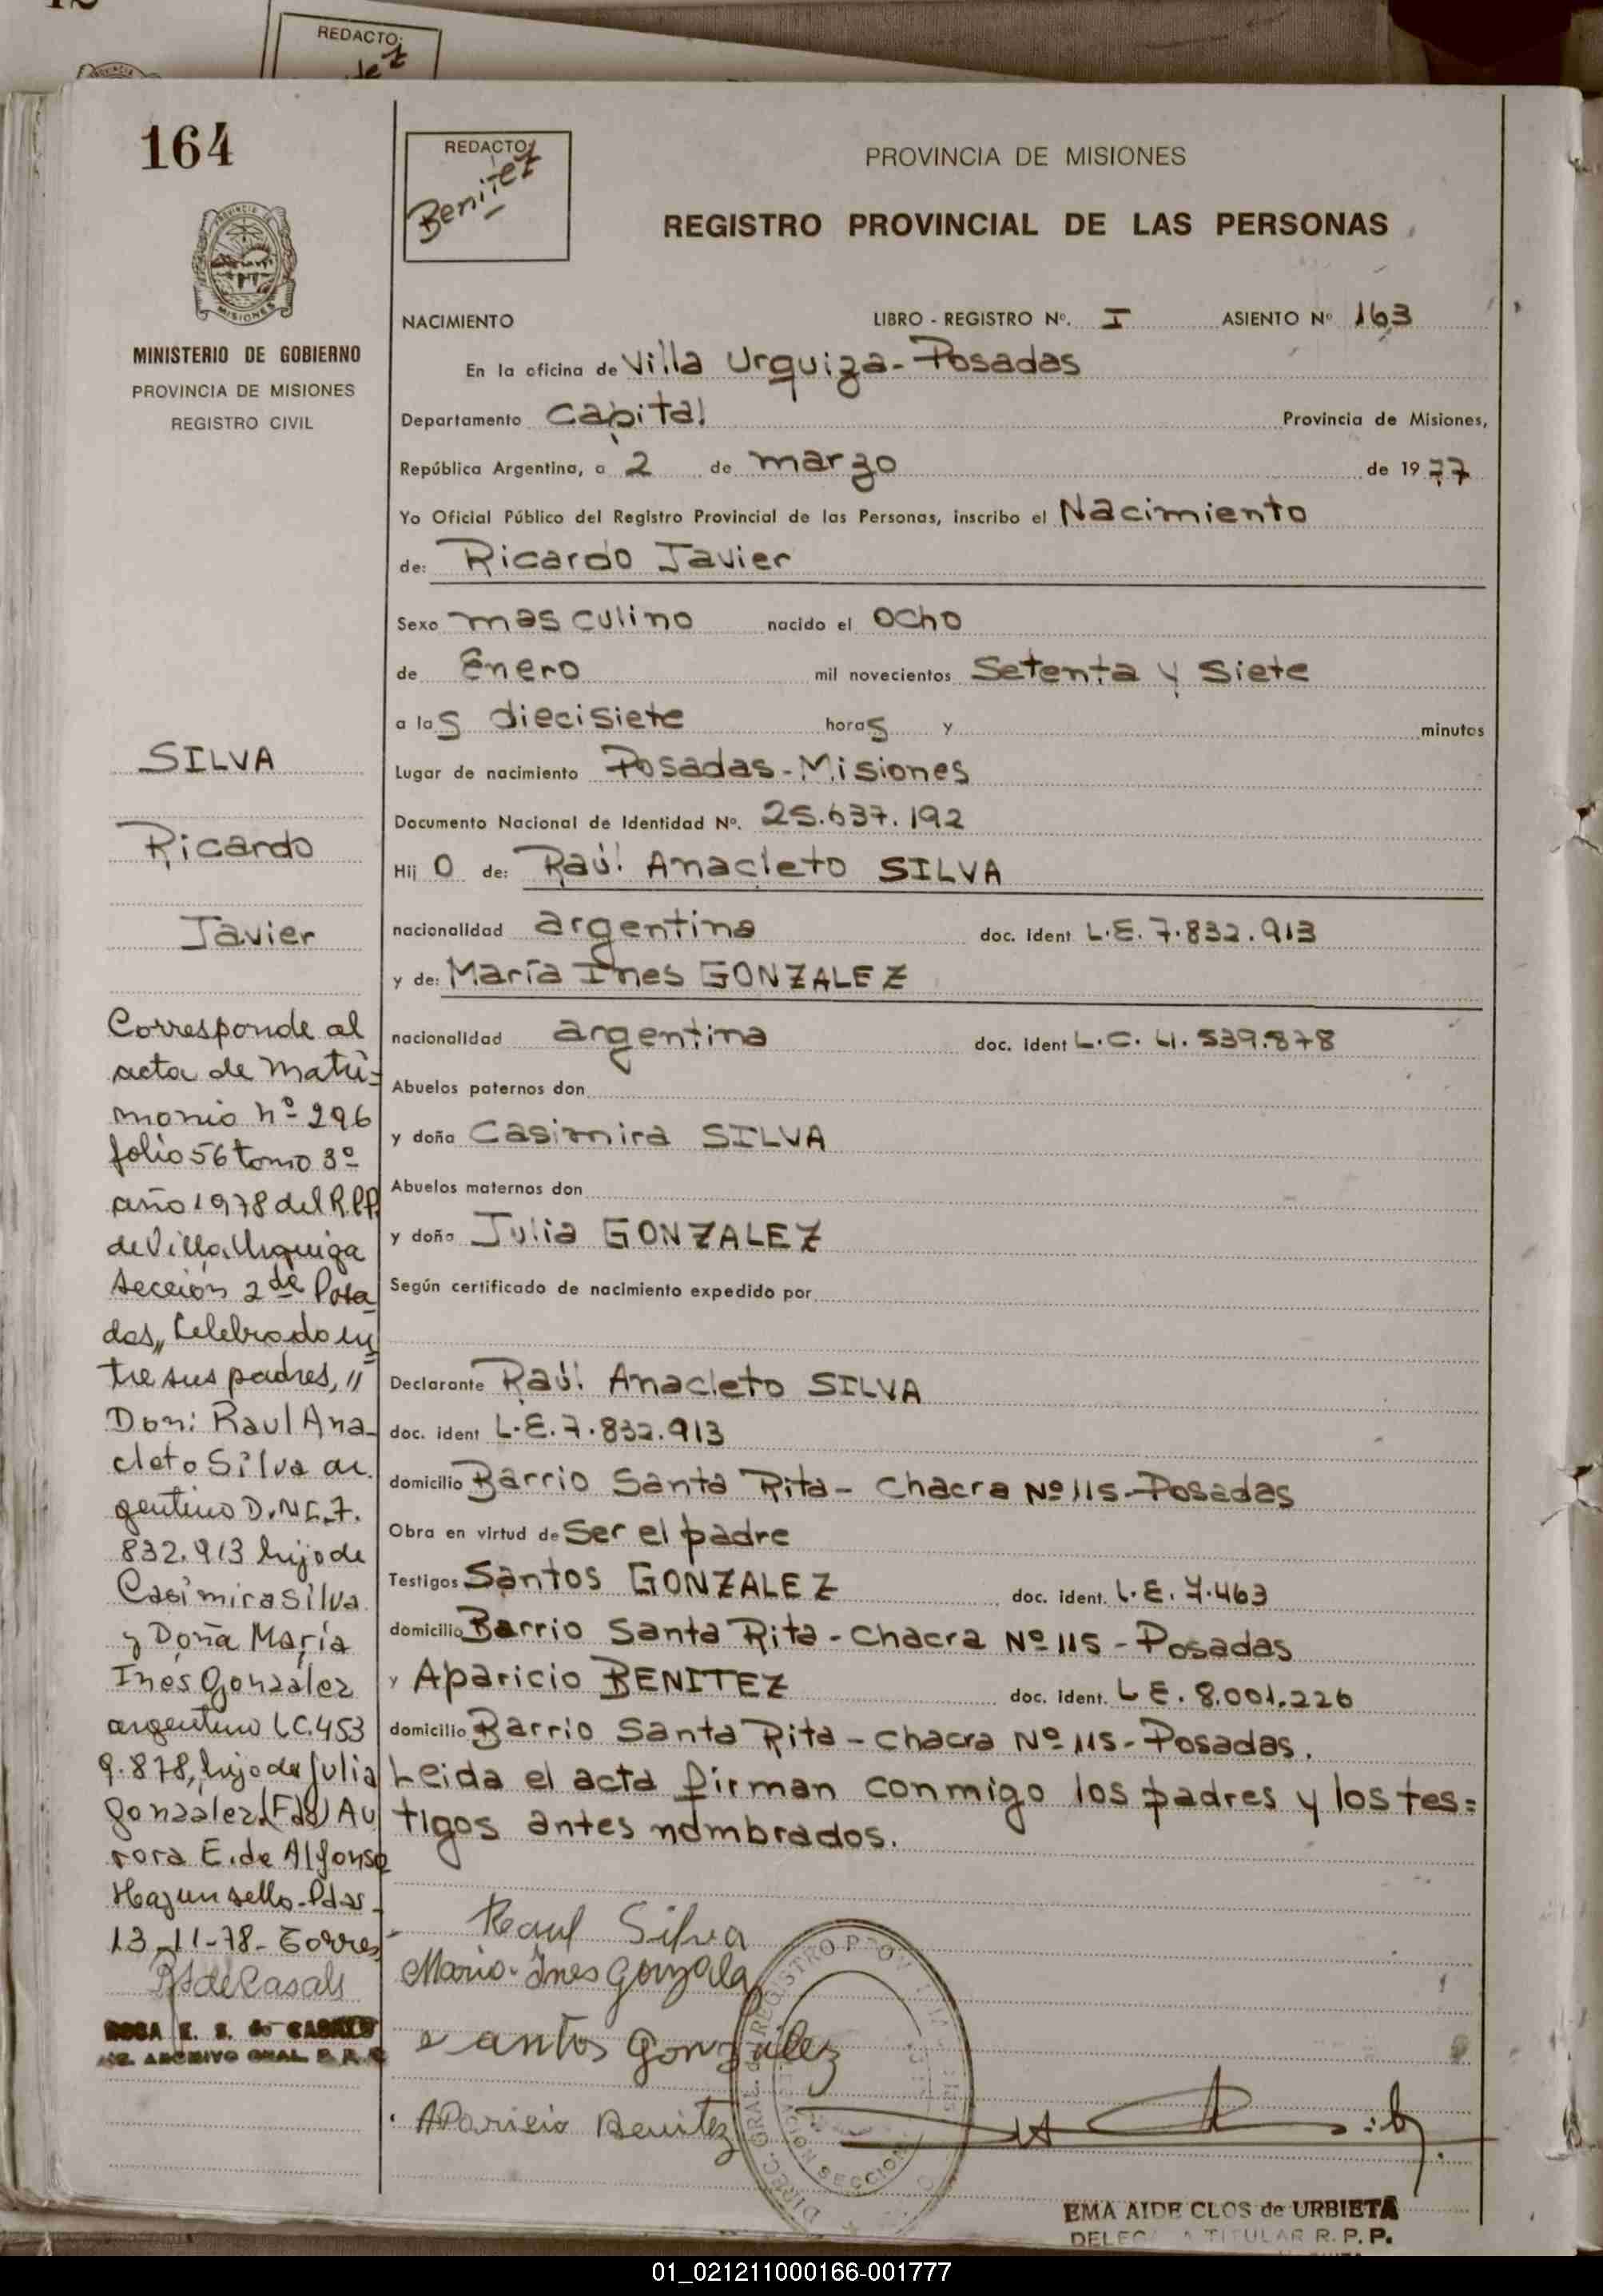 REDACTO:
164
REDACTO:
Benitez
PROVINCIA DE MISIONES
REGISTRO PROVINCIAL DE LAS PERSONAS
MINISTERIO DE GOBIERNO
PROVINCIA DE MISIONES
REGISTRO CIVIL
NACIMIENTO LIBRO - REGISTRO Nº. I ASIENTO Nº 163
En la oficina de Villa Urquiza - Posadas
Departamento Capital Provincia de Misiones,
República Argentina, a 2 de marzo de 1977
Yo Oficial Público del Registro Provincial de las Personas, inscribo el Nacimiento
de: Ricardo Javier
Sexo masculino nacido el ocho
de Enero mil novecientos Setenta y Siete
a las diecisiete horas y minutos
Lugar de nacimiento Posadas - Misiones
Documento Nacional de Identidad Nº. 25.637.192
Hijo de: Raúl Anacleto SILVA
nacionalidad argentina doc. ident L.E. 7.832.913
y de: María Ines GONZALEZ
nacionalidad argentina doc. ident L.C. 4.539.878
Abuelos paternos don
y doña Casimira SILVA
Abuelos maternos don
y doña Julia GONZALEZ
Según certificado de nacimiento expedido por
Declarante Raúl Anacleto SILVA
doc. ident L.E. 7.832.913
domicilio Barrio Santa Rita - Chacra Nº 115 - Posadas
Obra en virtud de Ser el padre
Testigos Santos GONZALEZ doc. ident. L.E. 7.463
domicilio Barrio Santa Rita - Chacra Nº 115 - Posadas
y Aparicio BENITEZ doc. ident. L E. 8.001.226
domicilio Barrio Santa Rita - Chacra Nº 115 - Posadas.
Leida el acta firman conmigo los padres y los tes=
tigos antes nombrados.
SILVA
Ricardo
Javier
Corresponde al
acta de Matri=
monio nº 296
folio 56 tomo 3º
año 1978 del R.P.P.
de Villa Urquiza
Sección 2da de Posa
das,, Celebrado en
tre sus padres, "
Don: Raul Ana-
cleto Silva ar.
gentino D.N.I. 7.
832.913 hijo de
Casimira Silva
y Doña María
Inés González
argentino L.C. 453
9.878, hijo de Julia
González (Fdo) Au
rora E. de Alfonso
Hay un sello - Pdas -
13-11-78 - Torres
R S de Casals
ROSA E. S. de CASALS
ARCHIVO GRAL. R. P. P.
Raul Silva
Maria Ines Gonzala
Santos Gonzalez
Aparicio Benitez
DIREC. GRAL. REGISTRO PROV
SECCION
EMA AIDE CLOS de URBIETA
DELEGADA TITULAR R. P. P.
01_021211000166-001777